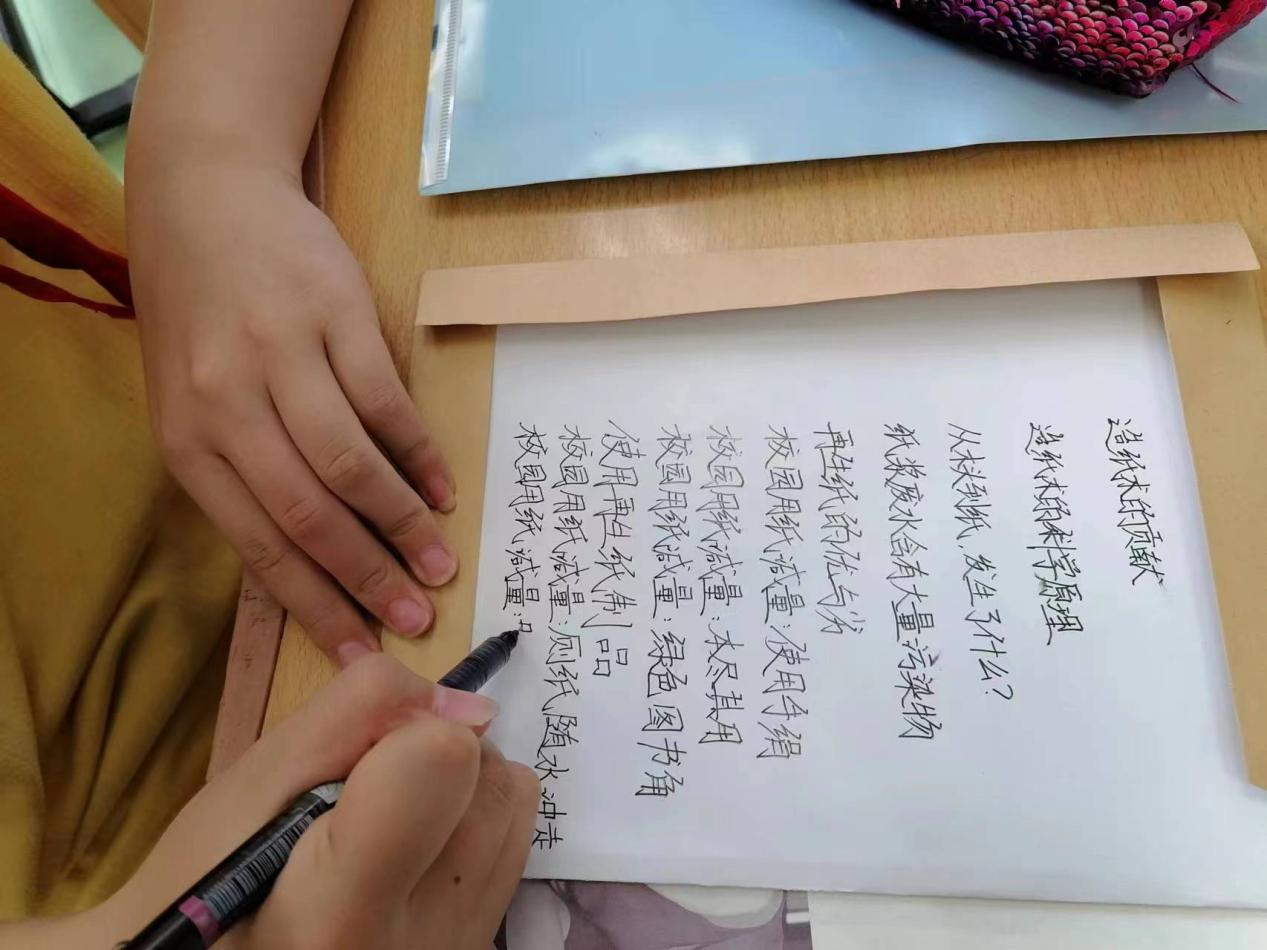 造纸术的贡献
造纸术的科学原理
从木材到纸，发生了什么？
纸浆废水含有大量污染物
再生纸的优与劣
校园用纸减量：使用手绢
校园用纸减量：本尽其用
校园用纸减量：绿色图书角
使用再生纸制品
校园用纸减量：厕纸随水冲走
校园用纸减量：